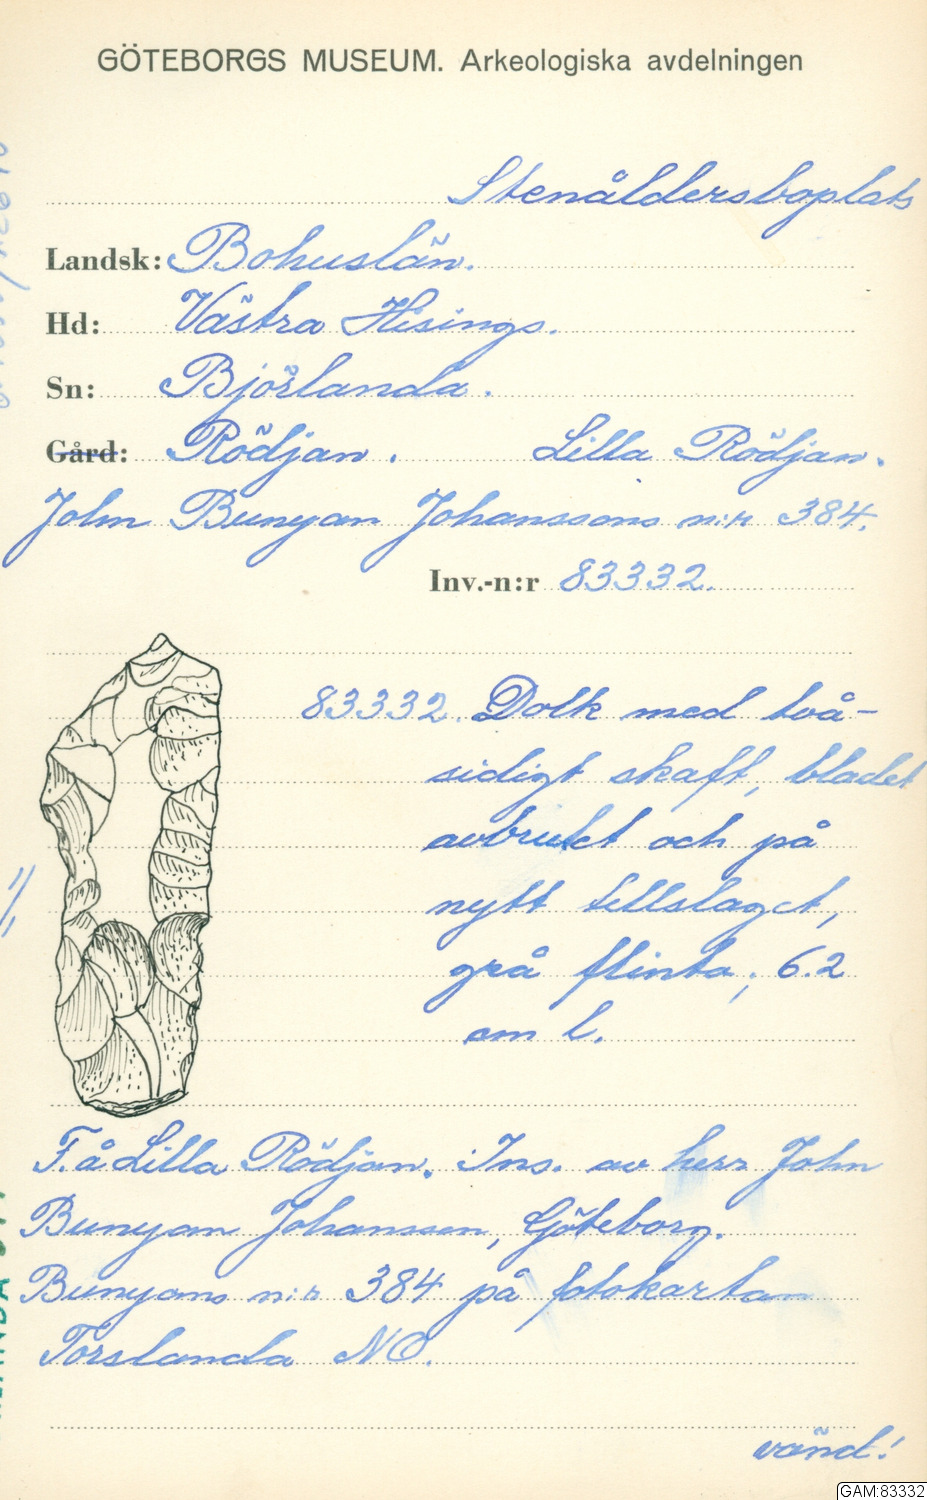 GÖTEBORGS MUSEUM. Arkeologiska avdelningen
Stenåldersboplats
Landsk: Bohuslän.
Hd: Västra Hisings.
Sn: Björlanda.
Gård: Rödjan. Lilla Rödjan.
John Bunyan Johanssons n:r 384.
Inv.-n:r 83332.
83332. Dolk med två-
sidigt skaft, bladet
avbrutet och på
nytt tillslaget,
grå flinta; 6.2
cm l.
1/1
F. å Lilla Rödjan. Ins. av herr John
Bunyan Johansson, Göteborg.
Bunyans n:r 384 på fotokartan
Torslanda NO.
vänd!
GAM:83332